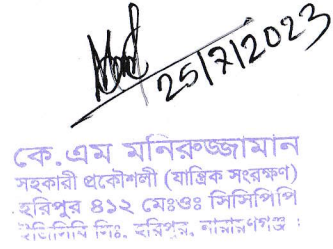 25/7/2023
কে.এম মনিরুজ্জামান
সহকারী প্রকৌশলী (যান্ত্রিক সংরক্ষণ)
হরিপুর ৪১২ মেঃওঃ সিসিপিপি
ইজিসিবি লিঃ, হরিপুর, নারায়ণগঞ্জ।